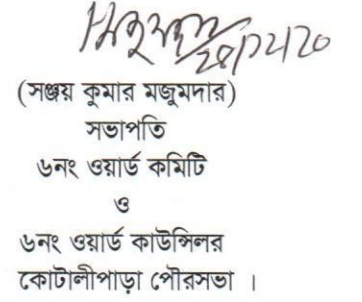 ২৪/১২/২০
(সঞ্জয় কুমার মজুমদার)
সভাপতি
৬নং ওয়ার্ড কমিটি
ও
৬নং ওয়ার্ড কাউন্সিলর
কোটালীপাড়া পৌরসভা ।